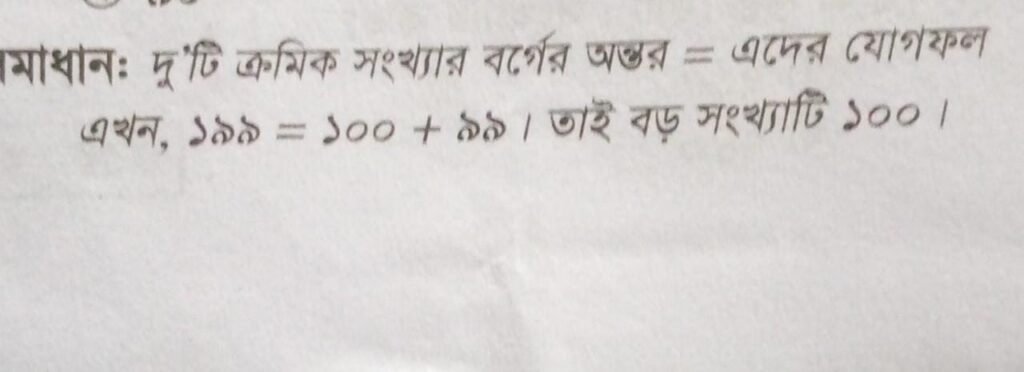 মাধান: দু'টি ক্রমিক সংখ্যার বর্গের অন্তর = এদের যোগফল
এখন, ১৯৯ = ১০০ + ৯৯। তাই বড় সংখ্যাটি ১০০।